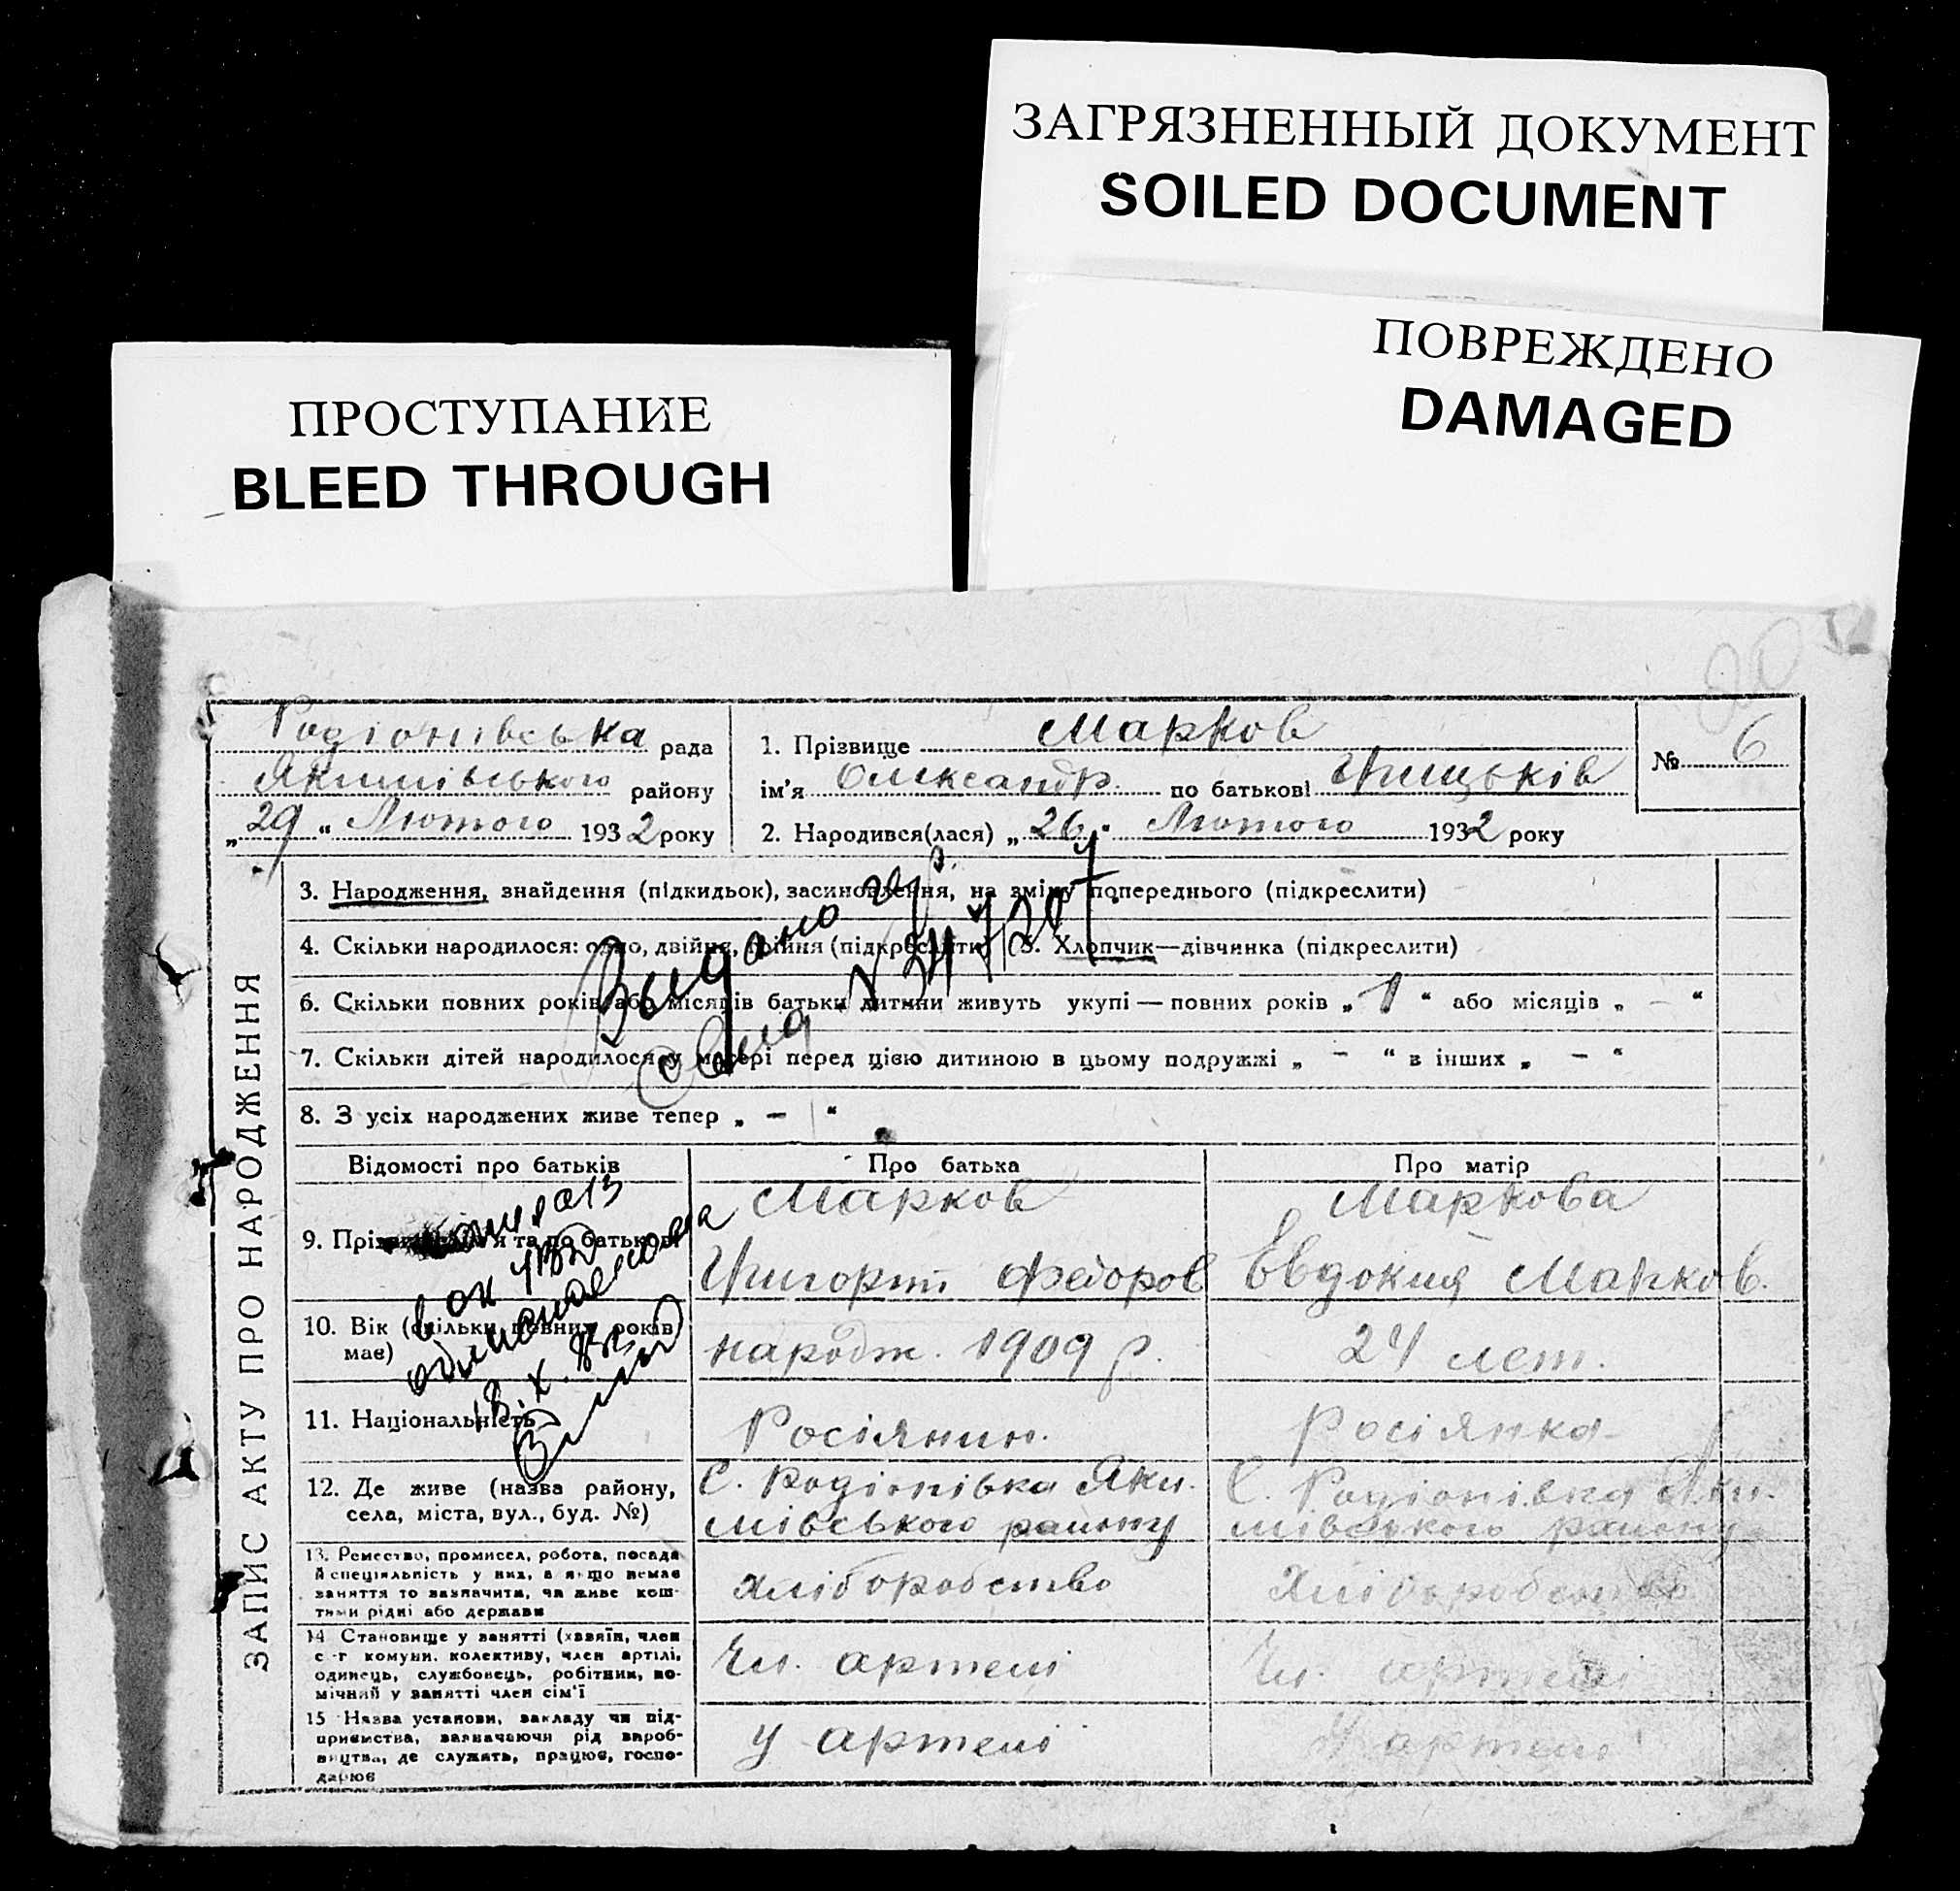 ЗАГРЯЗНЕННЫЙ ДОКУМЕНТ
SOILED DOCUMENT
ПОВРЕЖДЕНО
DAMAGED
ПРОСТУПАНИЕ
BLEED THROUGH
Родіонівська рада
Якимівського району
„29" Лютого 1932 року
1. Прізвище Марков
ім'я Олександр. по батькові Грицьків
2. Народився(лася) „26" Лютого 1932 року
№ 6
ЗАПИС АКТУ ПРО НАРОДЖЕННЯ
3. Народження, знайдення (підкидьок), засиновлення, на зміну попереднього (підкреслити)
4. Скільки народилося: одно, двійня, трійня (підкреслити) 5. Хлопчик—дівчинка (підкреслити)
6. Скільки повних років або місяців батьки дитини живуть укупі — повних років „1" або місяців „ – "
7. Скільки дітей народилося у матері перед цією дитиною в цьому подружжі „ – " в інших „ – "
8. З усіх народжених живе тепер „ – "
Выдано
свид
Відомості про батьків Про батька Про матір
9. Прізвище, ім'я та по батькові
Марков
Григорий Федоров
Маркова
Евдокия Марков.
10. Вік (скільки повних років має)
народж. 1909 р.
24 лет.
11. Національність
Росіянин.
Росіянка
12. Де живе (назва району,
села, міста, вул., буд. №)
С. Родіонівка Яки.
мівського району
С. Родіонівка Яки.
мівського району
13. Ремество, промисел, робота, посада
й спеціяльність у них, а якщо немає
заняття то зазначити, чи живе кош-
тами рідні або держави
хліборобство
Хліборобство
14 Становище у занятті (хазяїн, член
с-г комуни. колективу, член артілі,
одинець, службовець, робітник, по-
мічний у занятті член сім'ї
Чл. артелі
Чл. артелі
15 Назва установи, закладу чи під-
приємства, зазначаючи рід вироб-
ництва, де служать, працює, госпо-
дарює
У артелі
У артелі